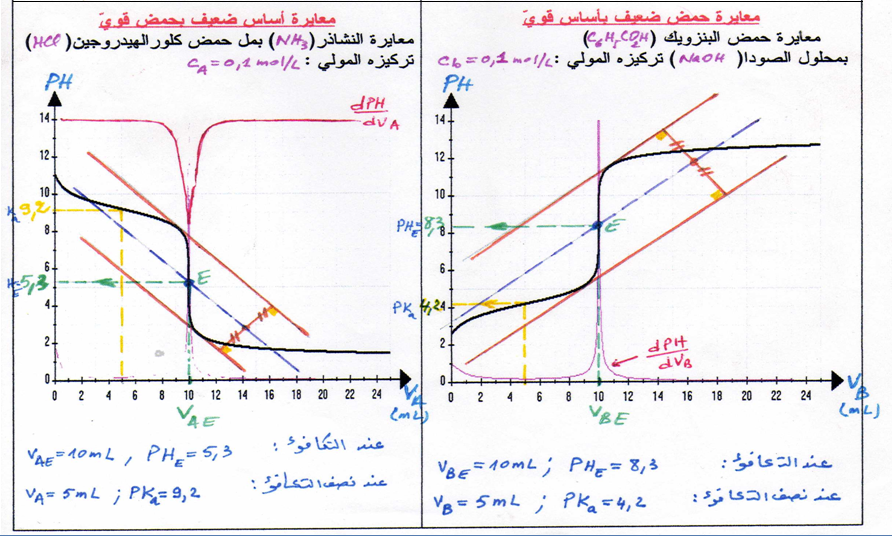 معايرة حمض ضعيف بأساس قويّ
معايرة حمض البنزويك (C₆H₅CO₂H)
بمحلول الصودا (NaOH) تركيزه المولي : Cb = 0,1 mol/L
PH
14
12
10
8
6
4
2
0
PHE = 8,3
E
PKa 4,2
dPH/dVB
2 4 6 8 10 12 14 16 18 20 22 24
VBE
VB (mL)
عند التكافؤ : VBE = 10 mL ; PHE = 8,3
عند نصف التكافؤ : VB = 5 mL ; PKa = 4,2
معايرة أساس ضعيف بحمض قويّ
معايرة النشاذر (NH₃) بمل حمض كلور الهيدروجين (HCl)
تركيزه المولي : CA = 0,1 mol/L
PH
dPH/dVA
14
12
10
8
6
4
2
0
Ka 9,2
HE 5,3
E
0 2 4 6 8 10 12 14 16 18 20 22 24
VAE
VA (mL)
عند التكافؤ : VAE = 10 mL , PHE = 5,3
عند نصف التكافؤ : VA = 5 mL ; PKa = 9,2